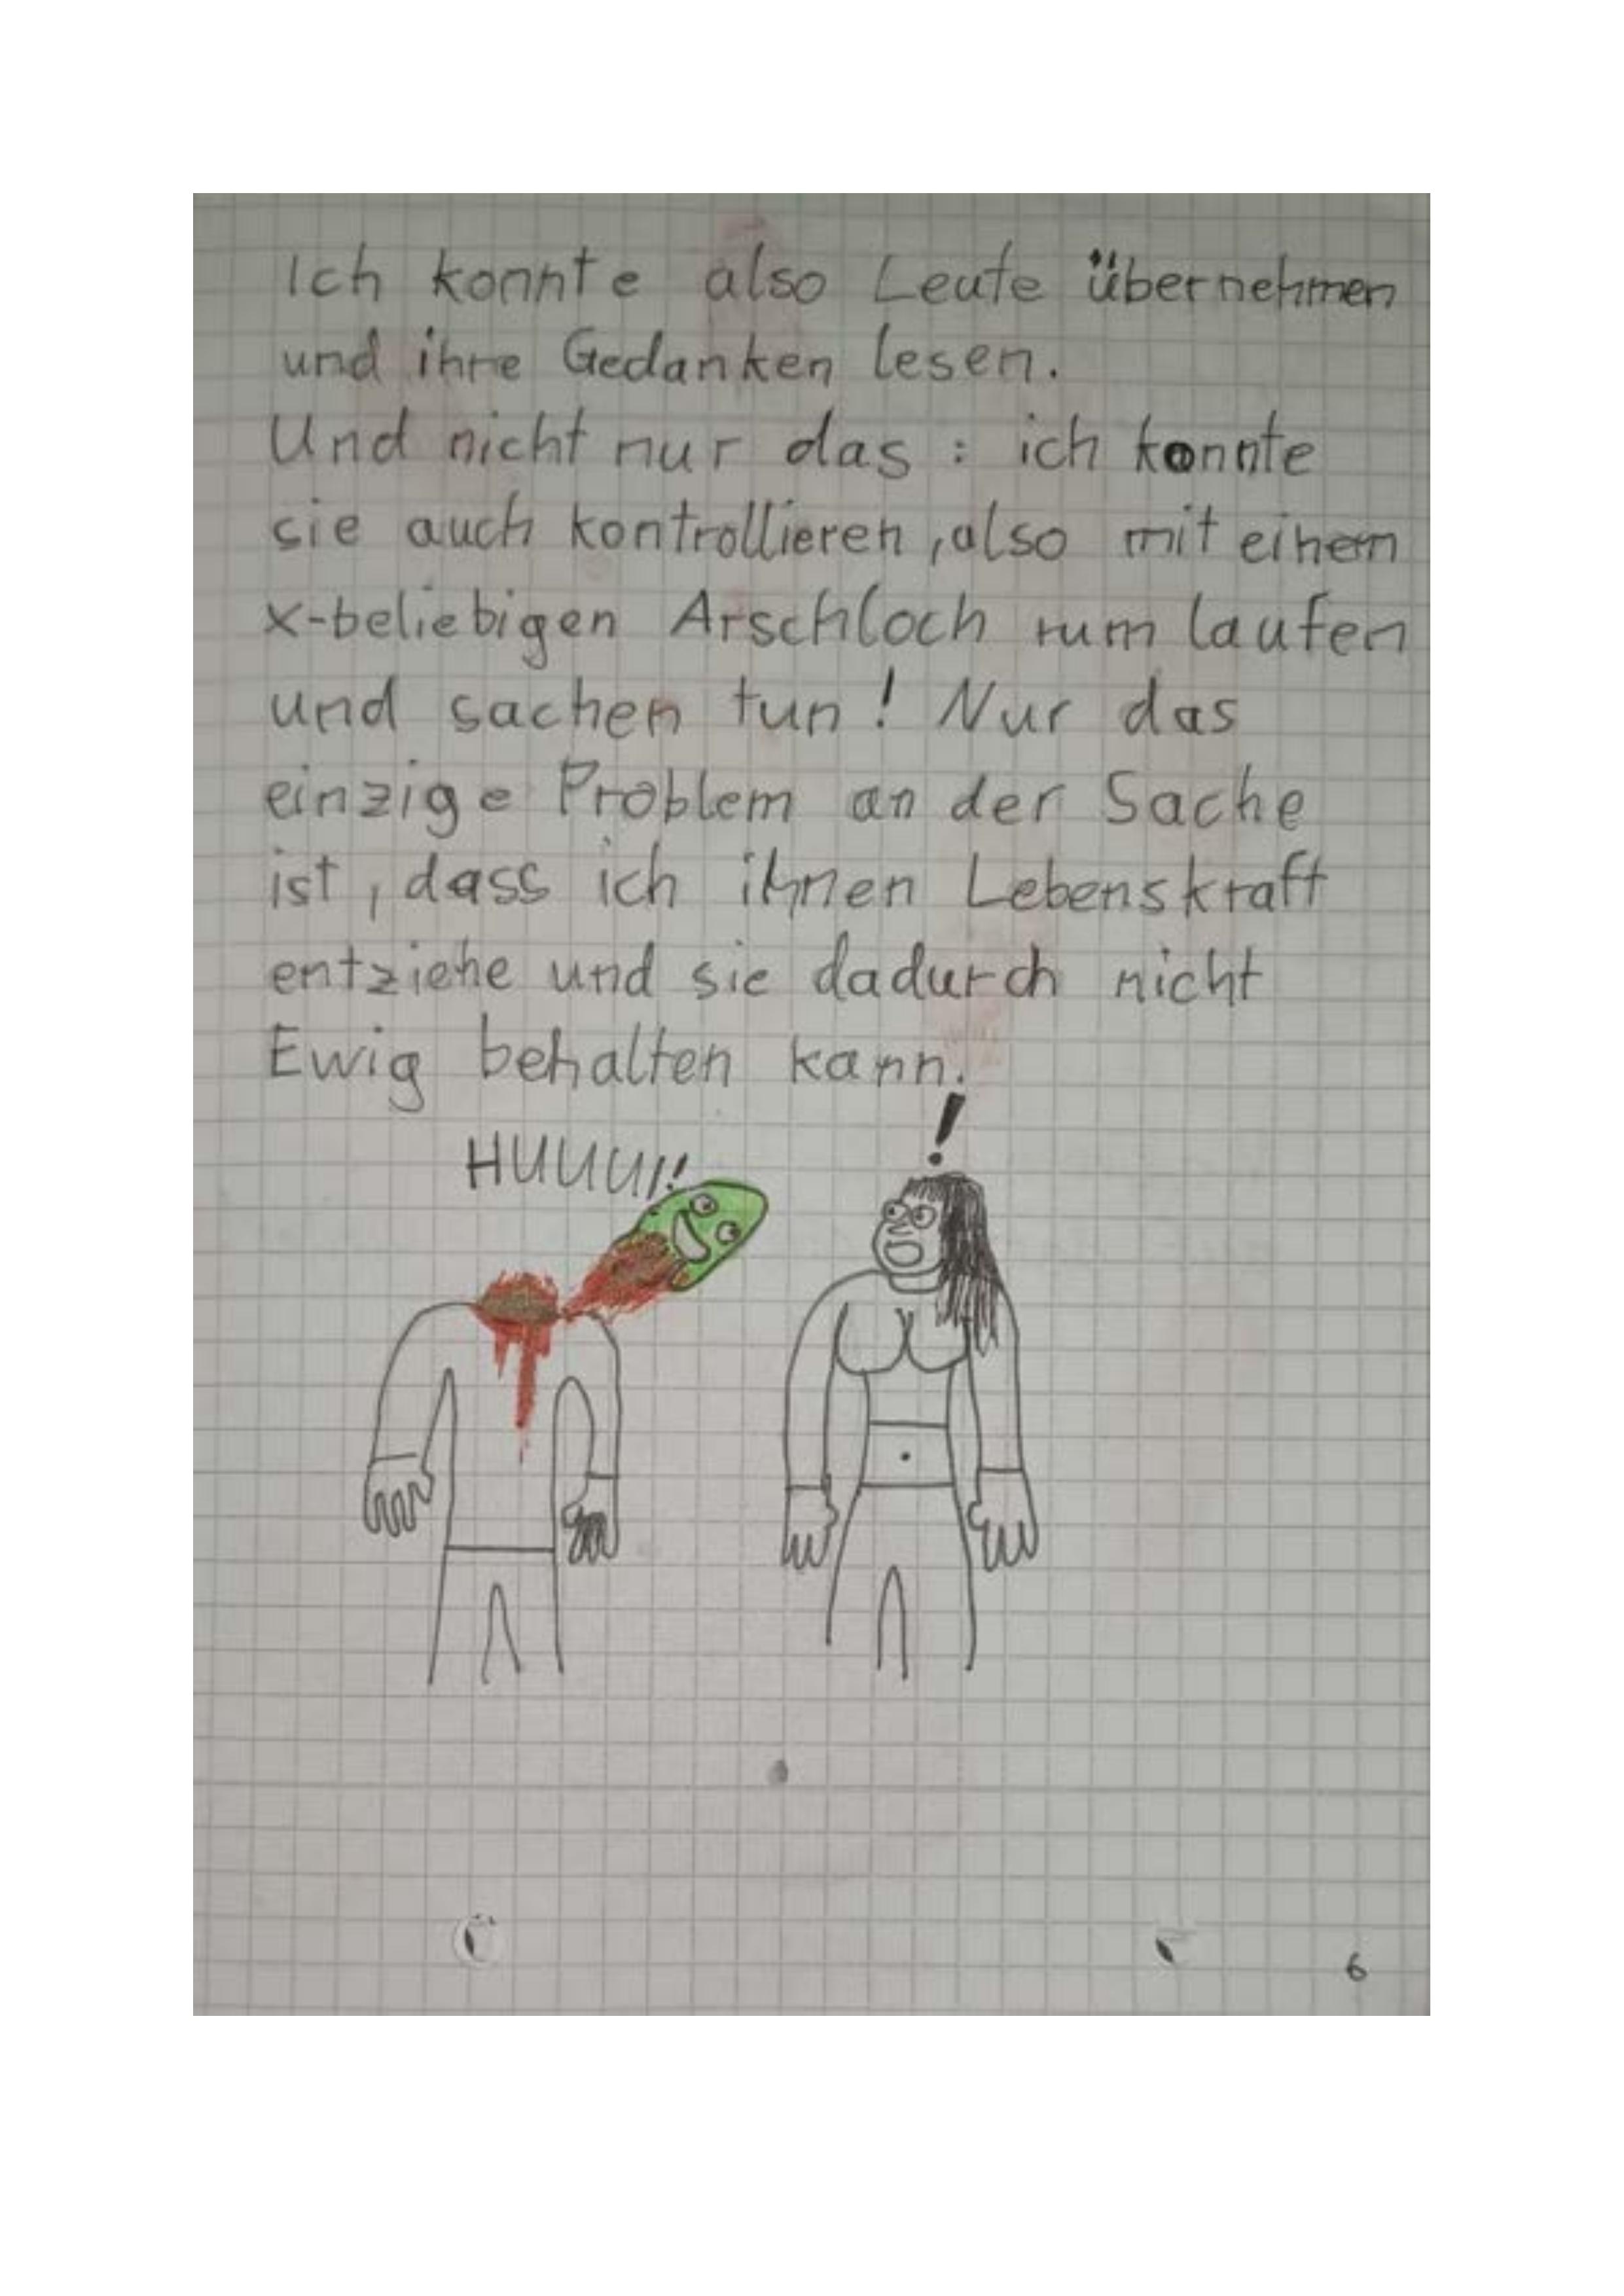 Ich konnte also Leute übernehmen
und ihre Gedanken lesen.
Und nicht nur das : ich konnte
sie auch kontrollieren, also mit einem
x-beliebigen Arschloch rum laufen
und sachen tun! Nur das
einzige Problem an der Sache
ist, dass ich ihnen Lebenskraft
entziehe und sie dadurch nicht
Ewig behalten kann.
!
HUUUU!!
6